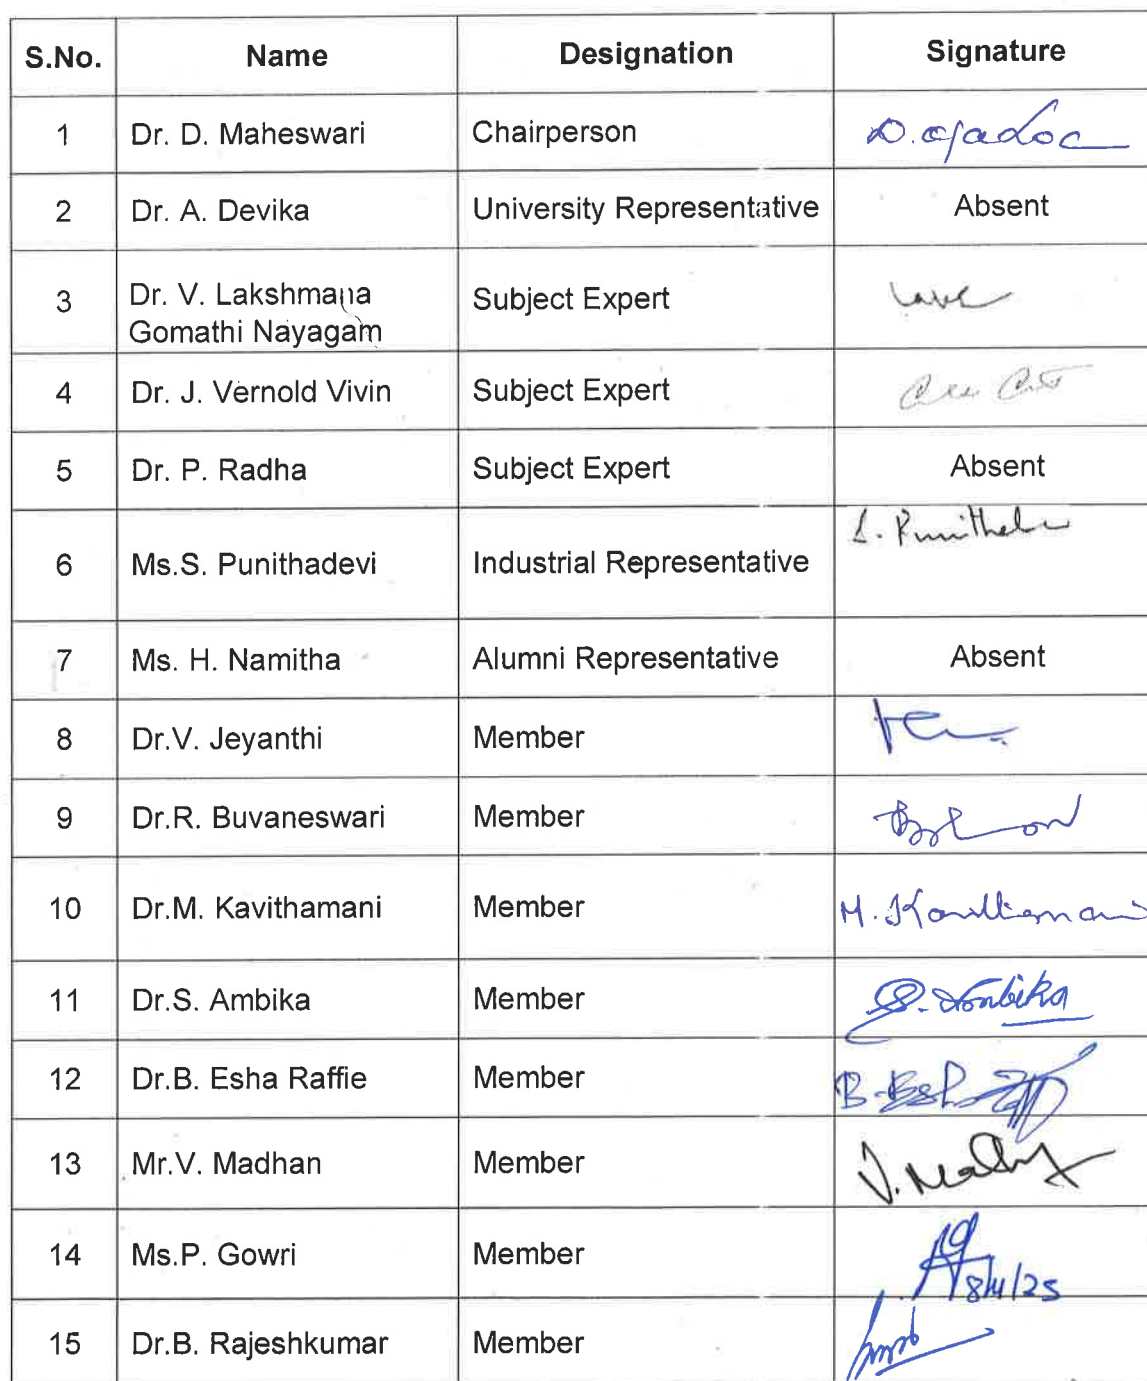 S.No. Name Designation Signature
1 Dr. D. Maheswari Chairperson
2 Dr. A. Devika University Representative Absent
3 Dr. V. Lakshmana Subject Expert
Gomathi Nayagam
4 Dr. J. Vernold Vivin Subject Expert
5 Dr. P. Radha Subject Expert Absent
6 Ms.S. Punithadevi Industrial Representative
7 Ms. H. Namitha Alumni Representative Absent
8 Dr.V. Jeyanthi Member
9 Dr.R. Buvaneswari Member
10 Dr.M. Kavithamani Member M. Kavithamani
11 Dr.S. Ambika Member S. Ambika
12 Dr.B. Esha Raffie Member
13 Mr.V. Madhan Member
14 Ms.P. Gowri Member
8/4/25
15 Dr.B. Rajeshkumar Member